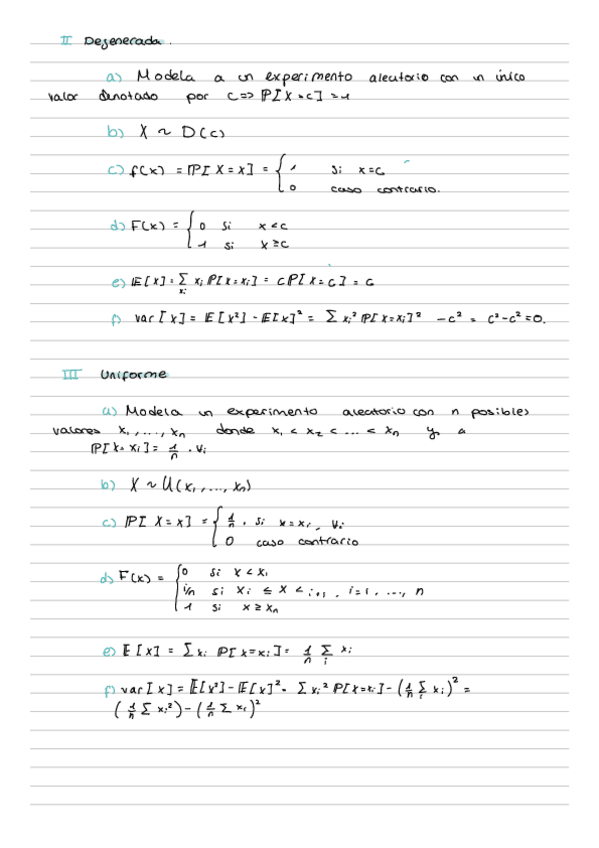 II Degenerada.
a) Modela a un experimento aleatorio con un único
valor denotado por c => P[X=c] = 1
b) X ~ D(c)
c) f(x) = P[X=x] = { 1 si x=c
0 caso contrario.
d) F(x) = { 0 si x<c
1 si x≥c
e) E[X] = Σ xi P[X=xi] = c P[X=c] = c
xi
f) var[X] = E[X²] - E[X]² = Σ xi² P[X=xi]² - c² = c²-c²=0.
III Uniforme
a) Modela un experimento aleatorio con n posibles
valores x1, ..., xn donde x1 < x2 < ... < xn y a
P[X=xi] = 1/n . ∀i
b) X ~ U(x1, ..., xn)
c) P[X=x] = { 1/n . si x=xi , ∀i
0 caso contrario
d) F(x) = { 0 si x<x1
i/n si xi ≤ x < i+1 , i=1, ..., n
1 si x≥xn
e) E[X] = Σ xi P[X=xi] = 1/n Σ xi
i
f) var[X] = E[X²] - E[X]² = Σ xi² P[X=xi] - (1/n Σ xi)² =
(1/n Σ xi²) - (1/n Σ xi)²